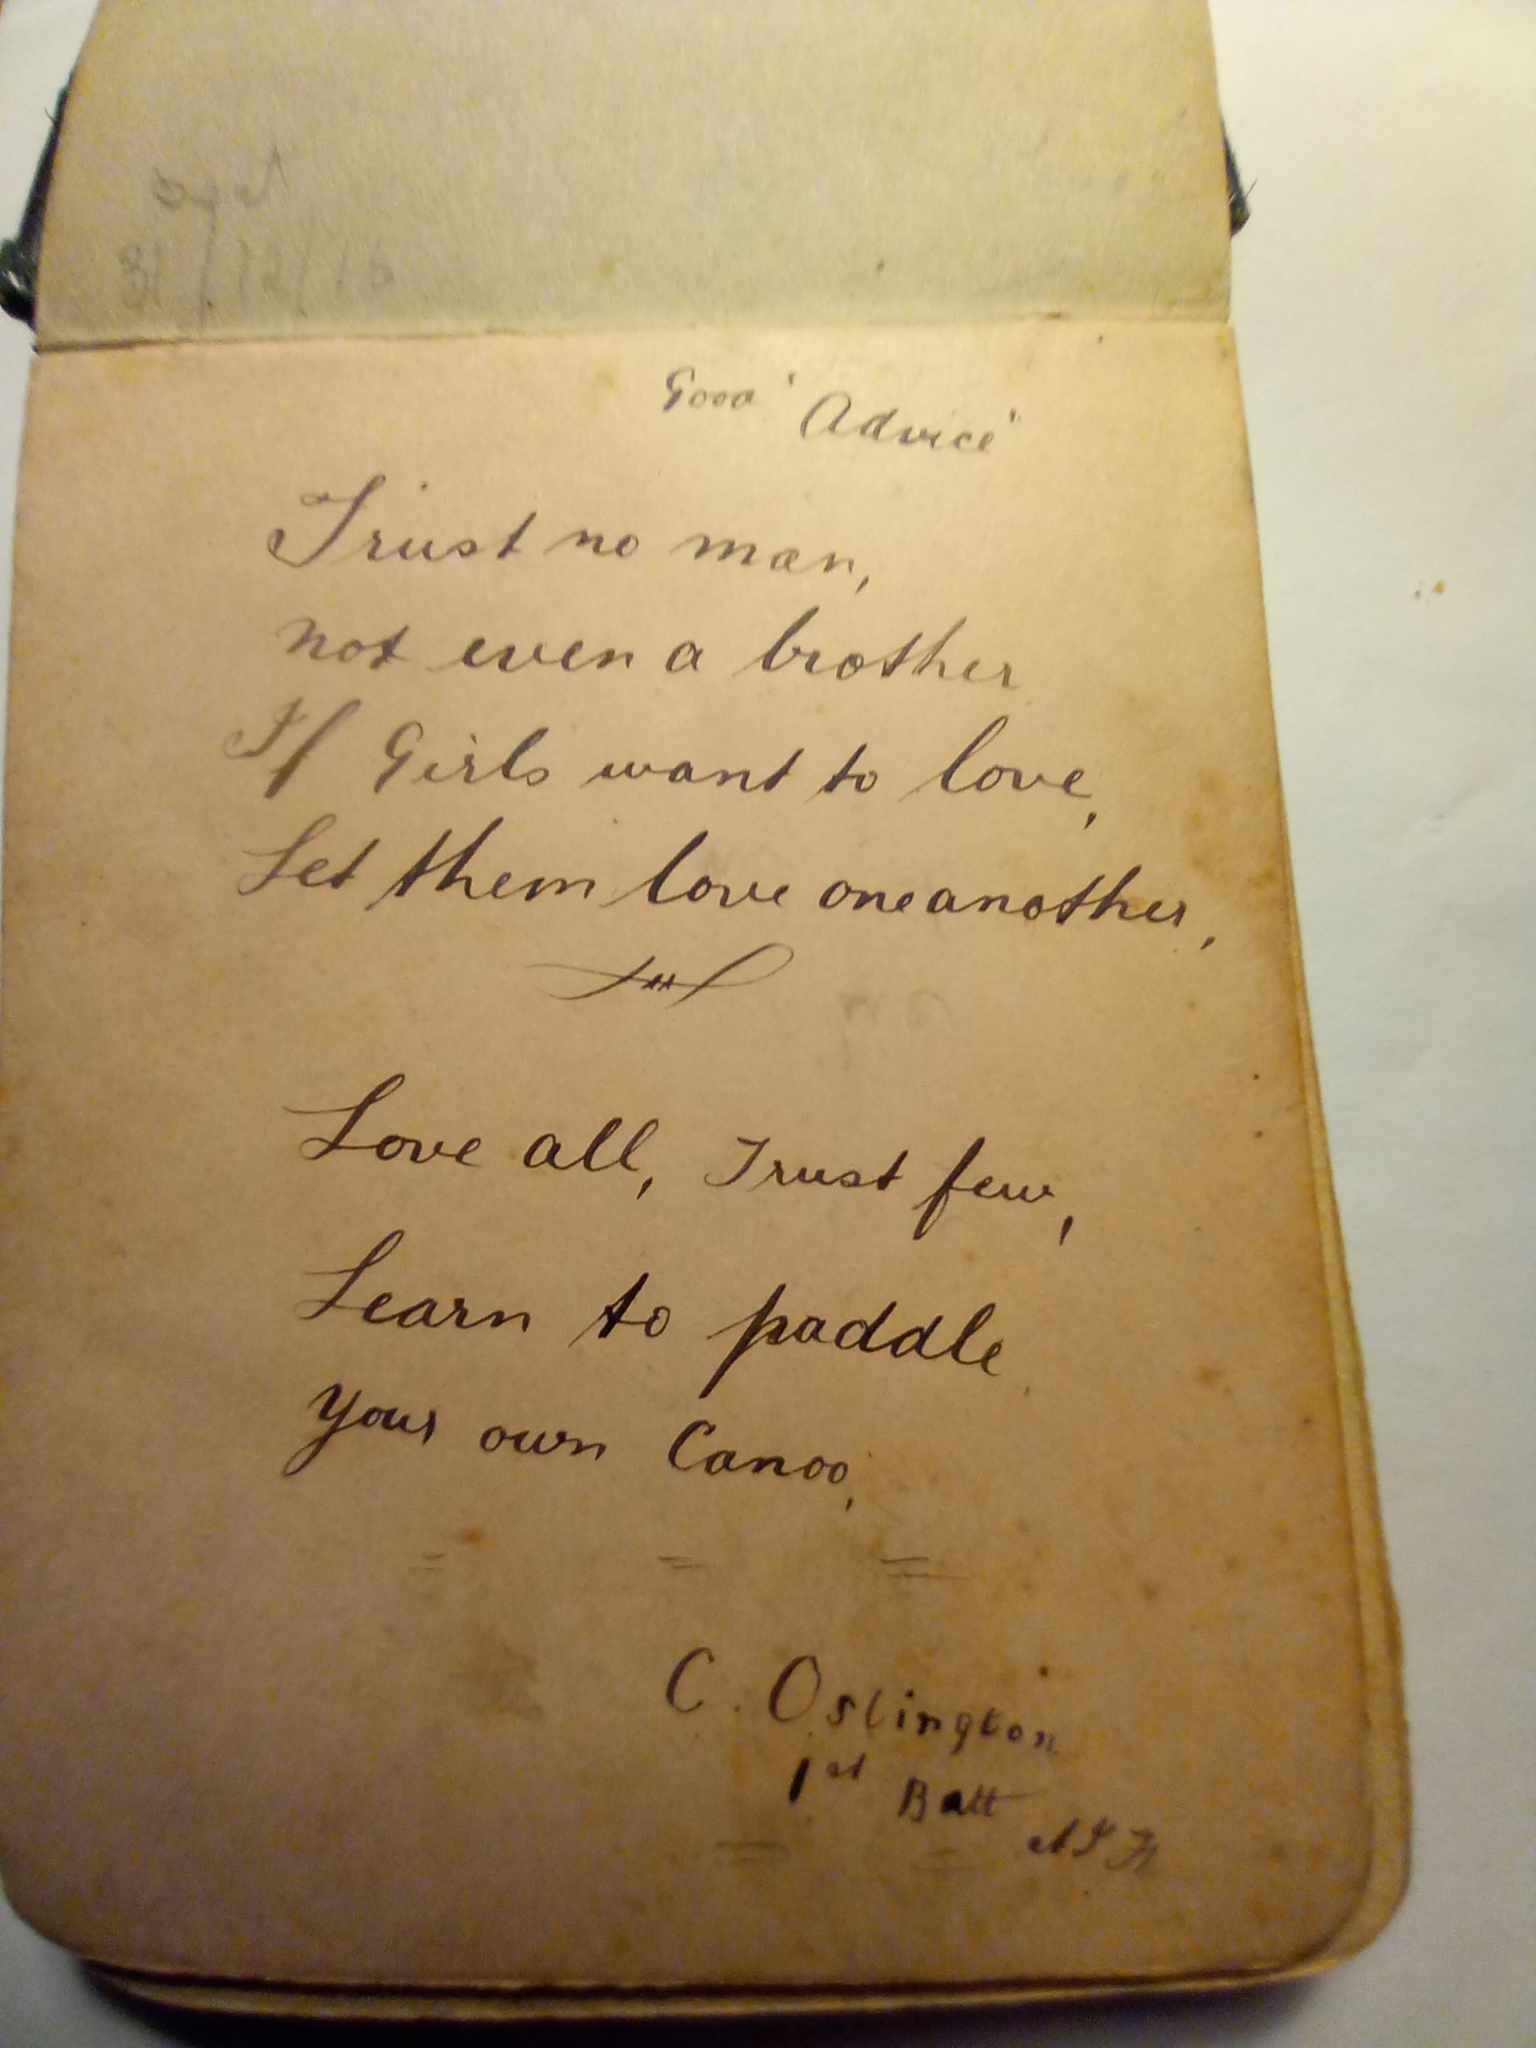 31/12/16
Good 'Advice'
Trust no man,
not even a brother
If Girls want to love,
Let them love one another,
Love all, Trust few,
Learn to paddle
your own Canoo,
C. Oslington
1st Batt